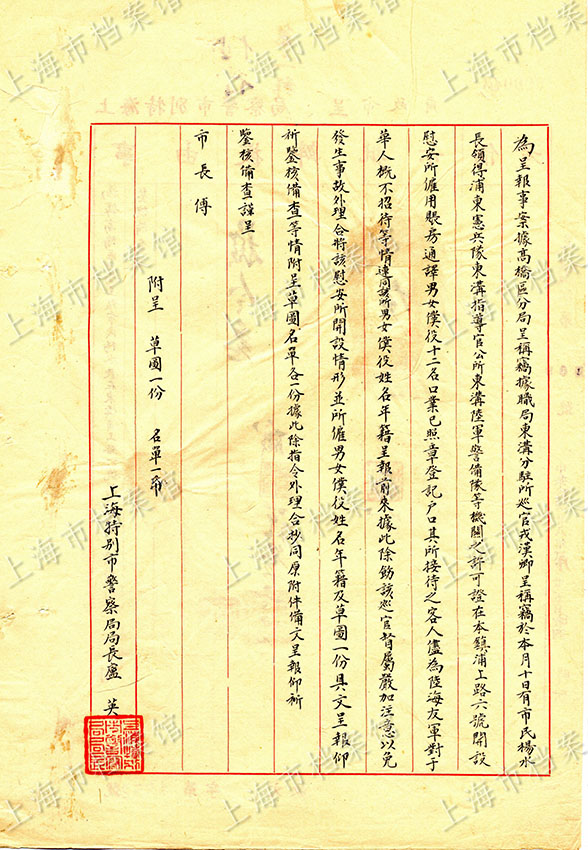 為呈報事案據高橋區分局呈稱竊據職局東溝分駐所巡官戎漢卿呈稱竊於本月十日有市民楊水
長領得浦東憲兵隊東溝指導官公所東溝陸軍警備隊等機關之許可證在本鎮浦上路六號開設
慰安所僱用賬房通譯男女僕役十二名口業已照章登記戶口其所接待之客人儘為陸海友軍對于
華人概不招待等情連同該所男女僕役姓名年籍呈報前來據此除飭該巡官督屬嚴加注意以免
發生事故外理合將該慰安所開設情形並所僱男女僕役姓名年籍及草圖一份具文呈報仰
祈鑒核備查等情附呈草圖名單各一份據此除指令外理合抄同原附件備文呈報仰祈
鑒核備查謹呈
市長傅
附呈 草圖一份 名單一帋
上海特別市警察局局長盧 英
上海市档案馆